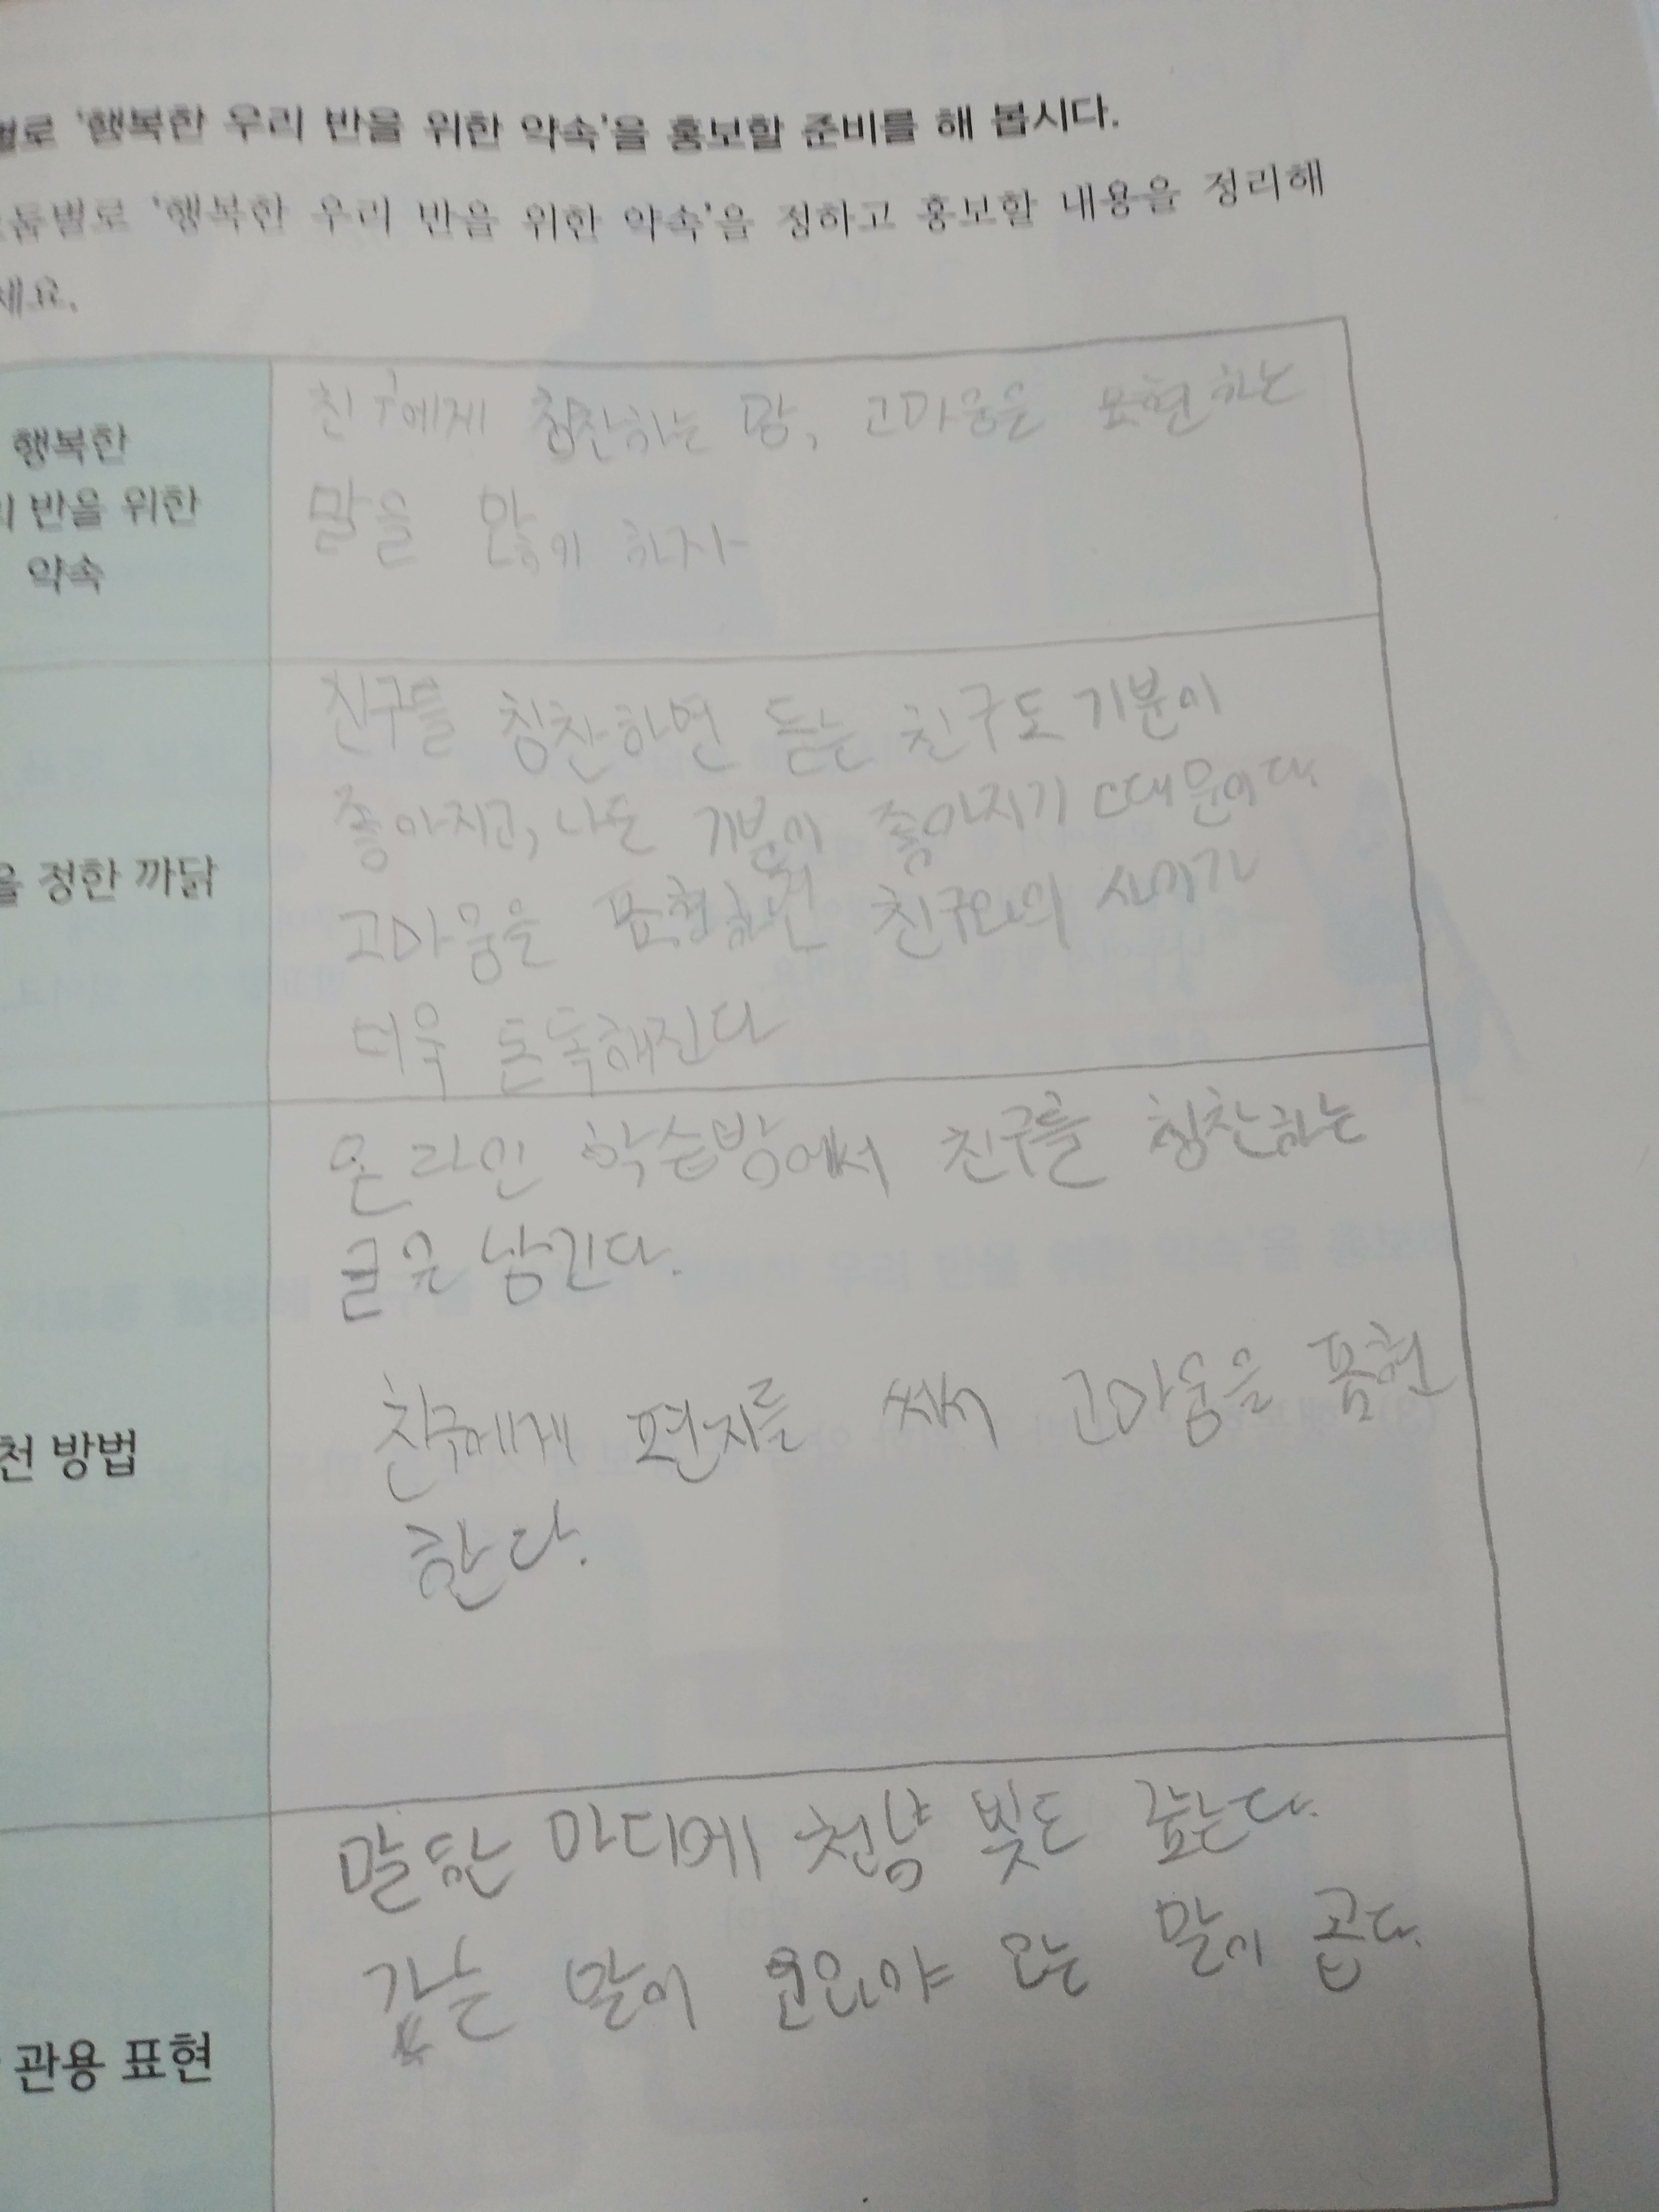 별로 '행복한 우리 반을 위한 약속'을 홍보할 준비를 해 봅시다.
모둠별로 '행복한 우리 반을 위한 약속'을 정하고 홍보할 내용을 정리해
세요.
행복한
리 반을 위한
약속
친구에게 칭찬하는 말, 고마움을 표현하는
말을 많이 하자
을 정한 까닭
친구를 칭찬하면 듣는 친구도 기분이
좋아지고, 나도 기분이 좋아지기 때문이다.
고마움을 표현하면 친구와의 사이가
더욱 돈독해진다
천 방법
온라인 학습방에서 친구를 칭찬하는
글을 남긴다.
친구에게 편지를 써서 고마움을 표현
한다.
관용 표현
말 한 마디에 천냥 빚도 갚는다.
가는 말이 고와야 오는 말이 곱다.